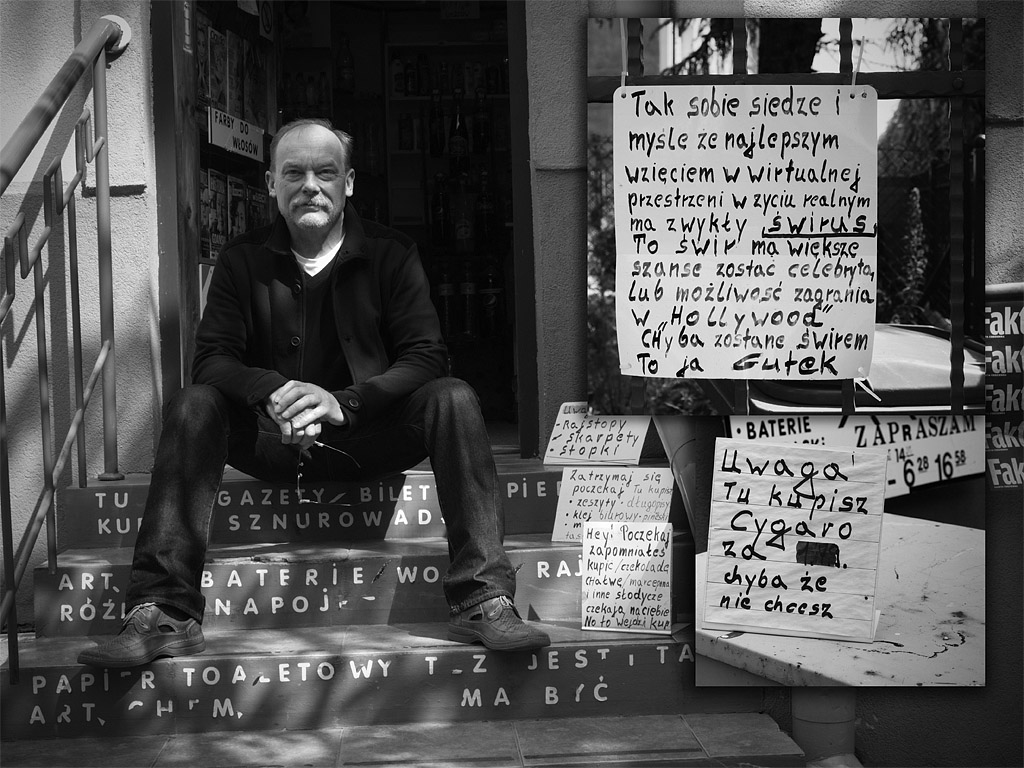 FARBY DO
WŁOSÓW
Tak sobie siedze i
myśle że najlepszym
wzięciem w wirtualnej
przestrzeni w życiu realnym
ma zwykły "świrus"
To "świr" ma większe
szanse zostać celebrytą,
lub możliwość zagrania
w „Hollywood"
CHyba zostane świrem
To ja Gutek
Fakt
Fakt
Fakt
Fakt
Fakt
• BATERIE
ZAPRASZAM
14
- 6 28 16 58
Uwaga!
Tu kupisz
Cygaro
za .
chyba że
nie chcesz
- Rajstopy
- skarpety
- stopki
Zatrzymaj się
poczekaj Tu kupisz
• zeszyty • długopisy
• klej biurowy
Hey! Poczekaj
zapomniałeś
kupić/czekoladę
CHałwę/marcepana
i inne słodycze
czekają na ciebie
No to wejdź i kup
TU GAZETY BILET PIE
KU SZNUROWAD
ART. BATERIE WO RAJ
RÓŻ NAPOJ
PAPIER TOALETOWY TEZ JEST I TA
ART. CHEM. MA BYĆ